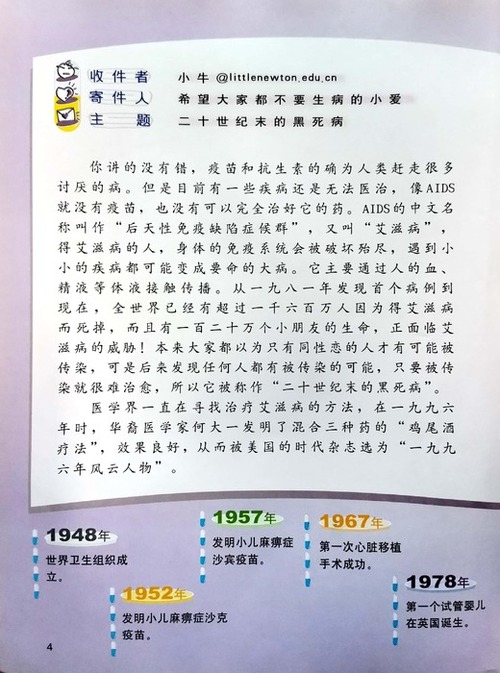 收件者 小牛@littlenewton.edu.cn
寄件人 希望大家都不要生病的小爱
主题 二十世纪末的黑死病
你讲的没有错，疫苗和抗生素的确为人类赶走很多
讨厌的病。但是目前有一些疾病还是无法医治，像AIDS
就没有疫苗，也没有可以完全治好它的药。AIDS的中文名
称叫作“后天性免疫缺陷症候群”，又叫“艾滋病”，
得艾滋病的人，身体的免疫系统会被破坏殆尽，遇到小
小的疾病都可能变成要命的大病。它主要通过人的血、
精液等体液接触传播。从一九八一年发现首个病例到
现在，全世界已经有超过一千六百万人因为得艾滋病
而死掉，而且有一百二十万个小朋友的生命，正面临艾
滋病的威胁！本来大家都以为只有同性恋的人才有可能被
传染，可是后来发现任何人都有被传染的可能，只要被传
染就很难治愈，所以它被称作“二十世纪末的黑死病”。
医学界一直在寻找治疗艾滋病的方法，在一九九六
年时，华裔医学家何大一发明了混合三种药的“鸡尾酒
疗法”，效果良好，从而被美国的时代杂志选为“一九九
六年风云人物”。
1948年
世界卫生组织成
立。
1952年
发明小儿麻痹症沙克
疫苗。
1957年
发明小儿麻痹症
沙宾疫苗。
1967年
第一次心脏移植
手术成功。
1978年
第一个试管婴儿
在英国诞生。
4